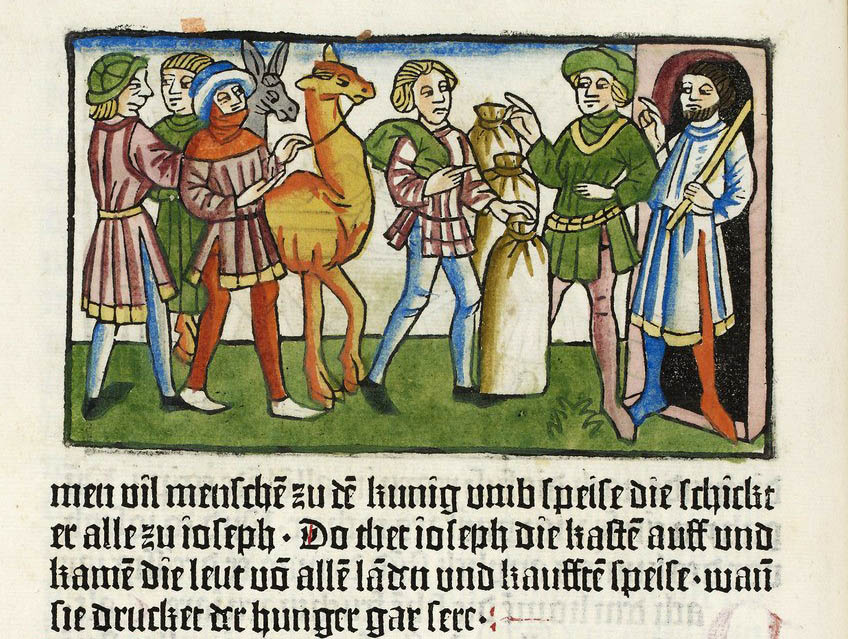 men vil menschē zu dē kunig vmb speise die schickt
er alle zu ioseph · Do thet ioseph die kastē auff vnd
kamē die leut vō allē lāden vnd kaufftē speise · wañ
sie drucket der hunger gar sere ·: